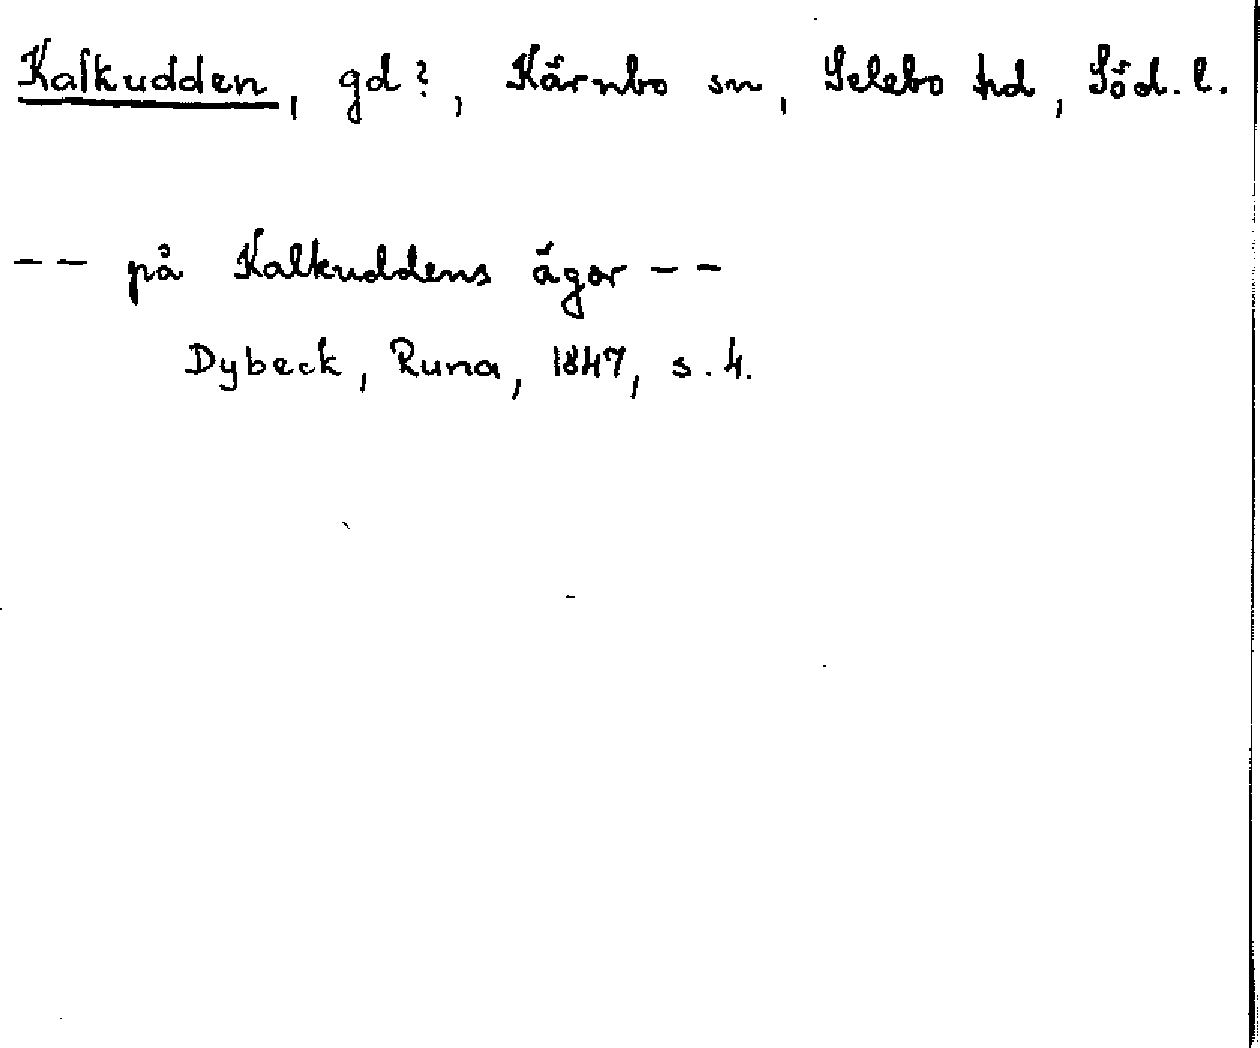 Kalkudden, gd?, Kärnbo sn, Selebo hd, Söd. l.
-- på Kalkuddens ägor --
Dybeck, Runa, 1847, s. 4.